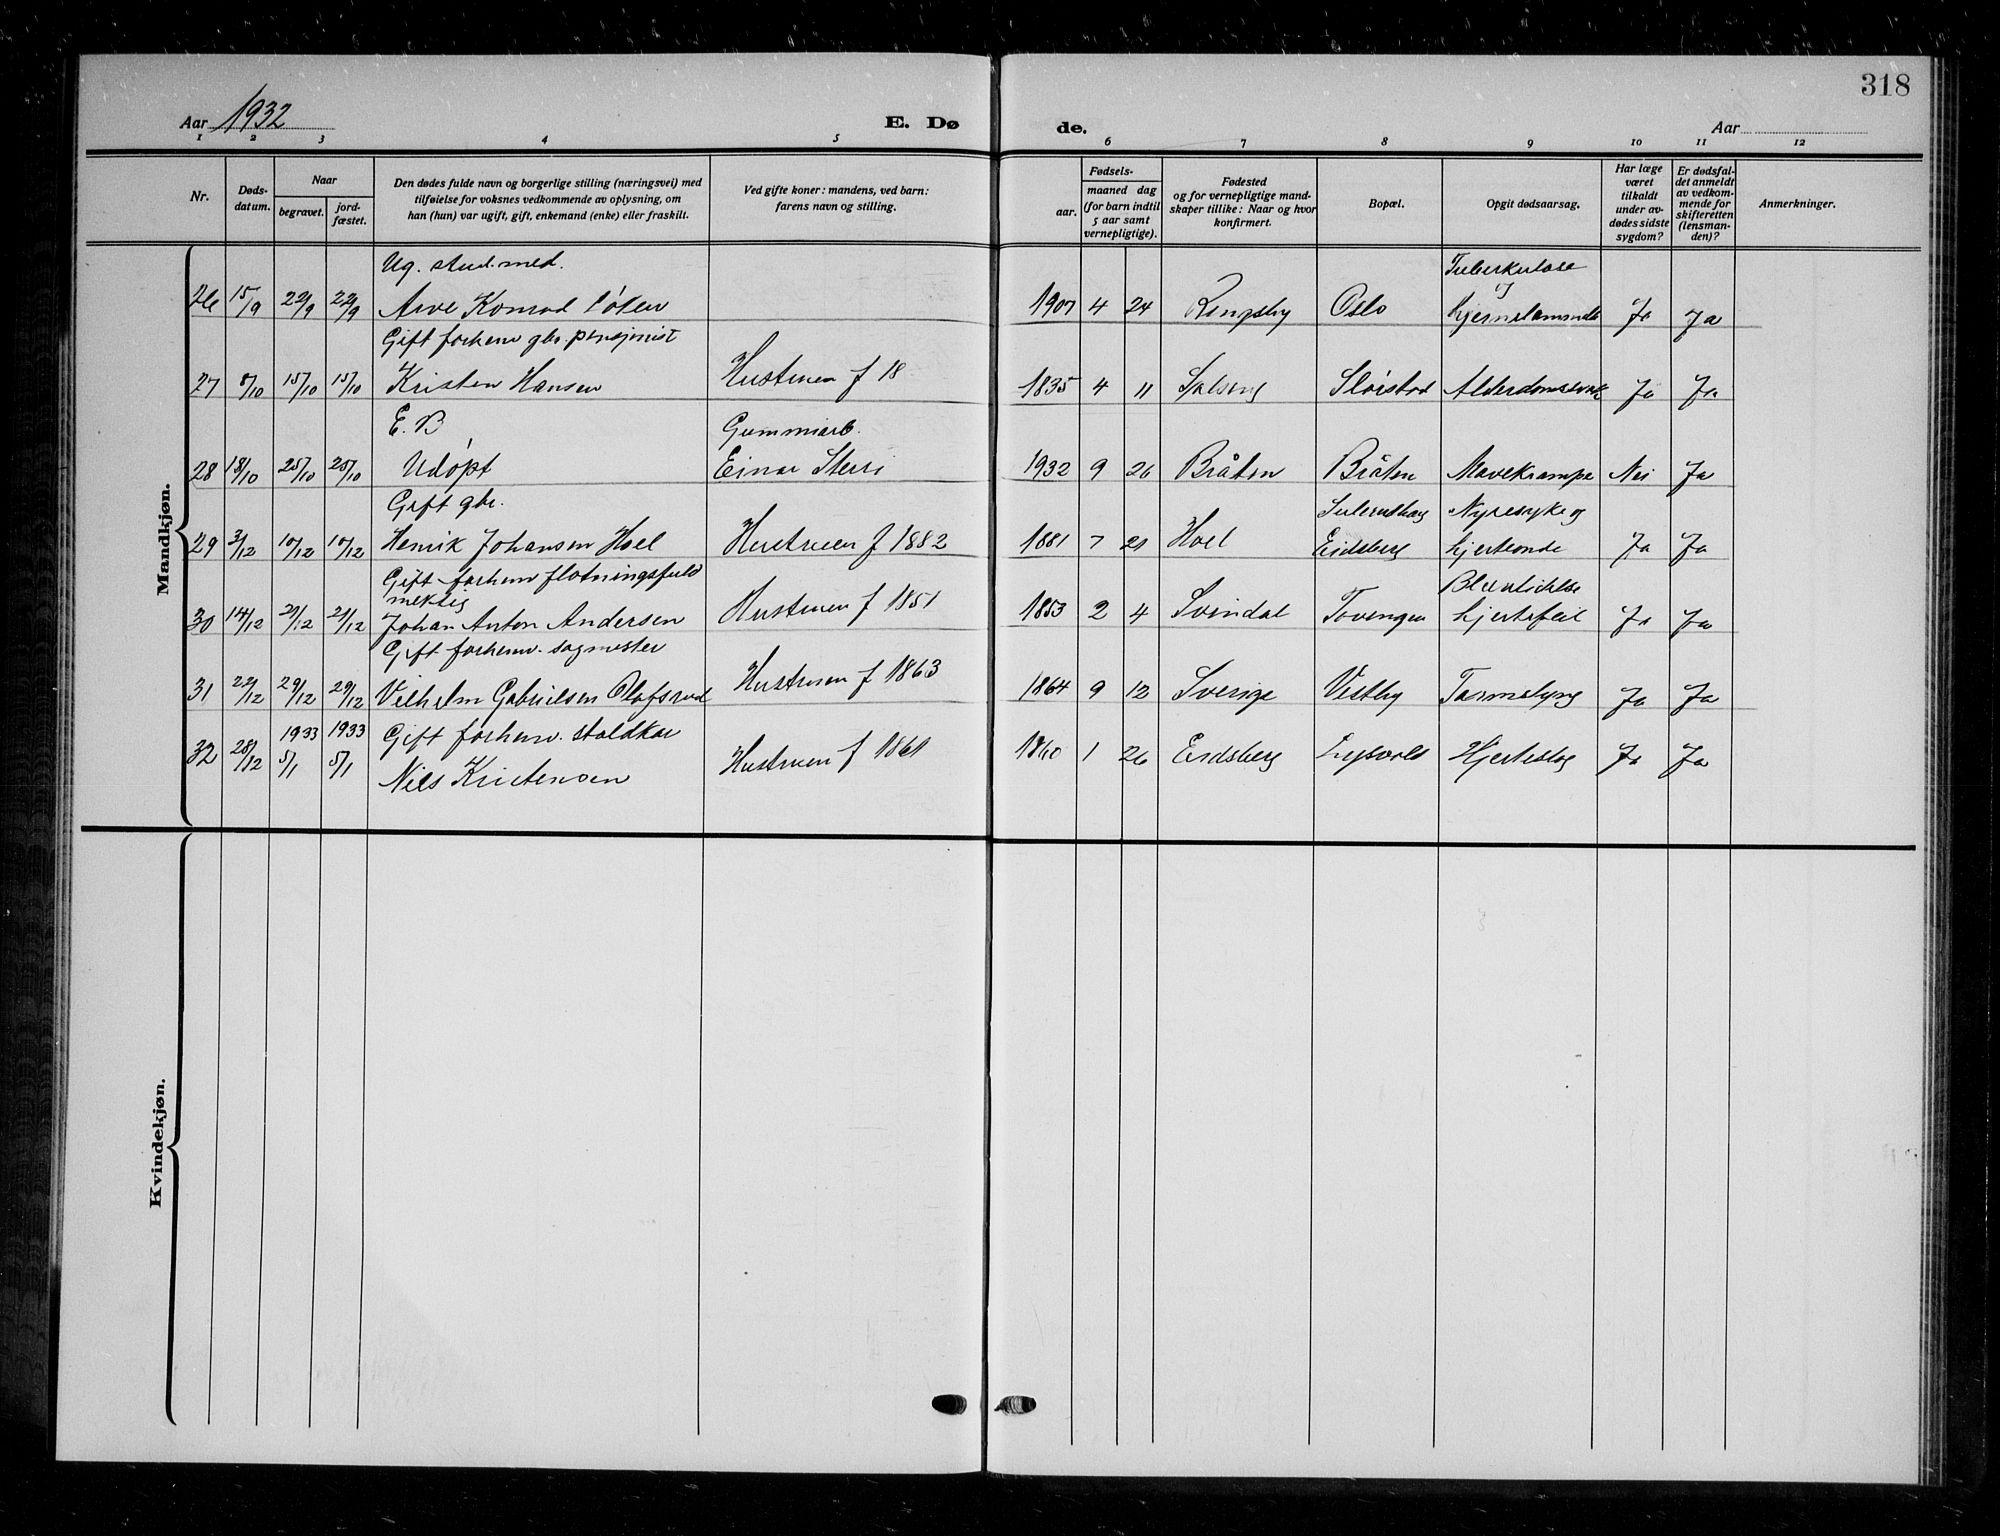 318
Aar 1932
E. Dø
de.
Aar
1 2 3 4 5 6 7 8 9 10 11 12
Nr.
Døds-
datum.
Naar
begravet.
jord-
fæstet.
Den dødes fulde navn og borgerlige stilling (næringsvei) med
tilføielse for voksnes vedkommende av oplysning, om
han (hun) var ugift, gift, enkemand (enke) eller fraskilt.
Ved gifte koner: mandens, ved barn:
farens navn og stilling.
Fødsels-
aar.
maaned dag
(for barn indtil
5 aar samt
vernepligtige).
Fødested
og for vernepligtige mand-
skaper tillike: Naar og hvor
konfirmert.
Bopæl.
Opgit dødsaarsag.
Har læge
været
tilkaldt
under av-
dødes sidste
sygdom?
Er dødsfal-
det anmeldt
av vedkom-
mende for
skifteretten
(lensman-
den)?
Anmerkninger.
Mandkjøn.
Ug. stud. med. Tuberkuløse
26 15/9 22/9 22/9 Arve Konrad Løken 1907 4 24 Ringsby Oslo Ja Ja
Gift forhenv gbr. pensjonist
27 8/10 15/10 15/10 Kristen Hansen Hustruen f 18 1835 4 11 Ja Ja
E. B Gummiarb.
28 18/10 25/10 25/10 Udøpt Einar Sterri 1932 9 26 Bråten Bråten Mavekrampe Nei Ja
Gift gbr. Nyresyke og
29 3/12 10/12 10/12 Henrik Johansen Hoel Hustruen f 1882 1881 7 21 Hoel Eidsberg hjerteonde Ja Ja
Gift forhenv fløtningsfuld
mektig
30 14/12 21/12 21/12 Johan Anton Andersen Hustruen f 1851 1853 2 4 Svindal Tovengen hjertefeil Ja Ja
Gift forhenv. sagmester
31 22/12 29/12 29/12 Vilhelm Gabrielsen Olafsrud Hustruen f 1863 1864 9 12 Sverige Vestby Tarmslyng Ja Ja
1933 1933 Gift forhenv. staldkar
32 28/12 5/1 5/1 Nils Kristensen Hustruen f 1861 1860 1 26 Eidsberg Hjerteslag Ja Ja
Kvindekjøn.